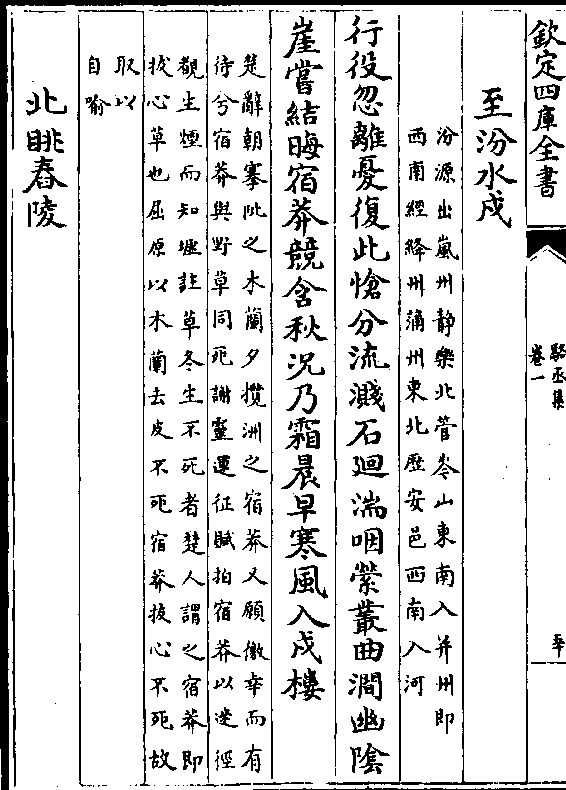 欽定四庫全書
駱丞集
卷一
至汾水戍
汾源出嵐州靜樂北管岑山東南入并州即
西南經絳州蒲州東北歴安邑西南入河
行役忽離憂復此愴分流濺石廻湍咽縈叢曲澗幽陰
崖嘗結晦宿莽競含秋況乃霜晨早寒風入戍樓
楚辭朝搴阰之木蘭夕攬洲之宿莽又願僥幸而有
待兮宿莽與野草同死謝靈運征賦拍宿莽以迷徑
覩生煙而知墟註草冬生不死者楚人謂之宿莽即
拔心草也屈原以木蘭去皮不死宿莽拔心不死故
取以
自喻
北眺舂陵